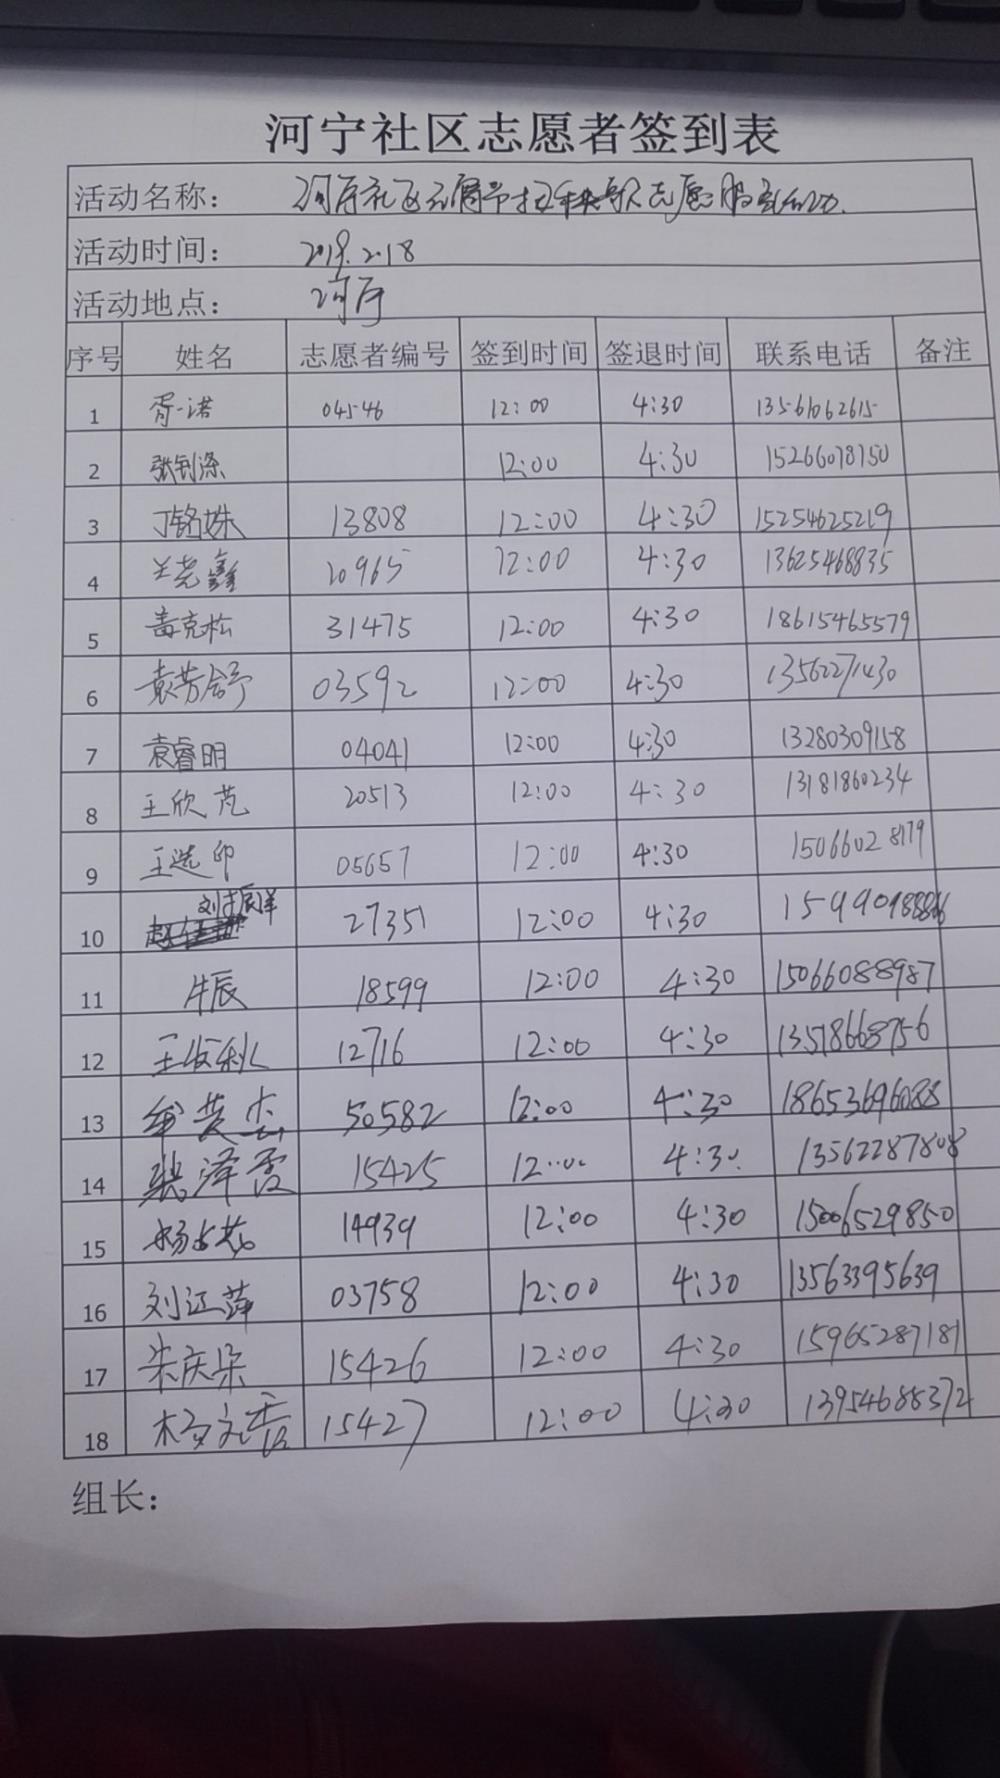 河宁社区志愿者签到表
活动名称： 河宁社区元宵节 志愿服务活动.
活动时间： 2019.2.18
活动地点： 河宁
序号 姓名 志愿者编号 签到时间 签退时间 联系电话 备注
1 胥一诺 04546 12:00 4:30 13561062615
2 张钊涤 12:00 4:30 15266018150
3 丁铭姝 13808 12:00 4:30 15254625219
4 兰尧鑫 20965 12:00 4:30 13625468835
5 盖克松 31475 12:00 4:30 18615465579
6 袁芳舒 03592 12:00 4:30 13562271430
7 袁睿明 04041 12:00 4:30 13280309158
8 王欣芃 20513 12:00 4:30 13181860234
9 王选印 05657 12:00 4:30 15066028179
10 刘振洋 27351 12:00 4:30
11 牛辰 18599 12:00 4:30 15066088987
12 12716 12:00 4:30 13518668756
13 50582 12:00 4:30 18653696088
14 张泽霞 15425 12:00 4:30 13562287808
15 14939 12:00 4:30 15006529850
16 刘江萍 03758 12:00 4:30 13563395639
17 朱庆朵 15426 12:00 4:30 15965287181
18 杨文香 15427 12:00 4:30 13954688372
组长：